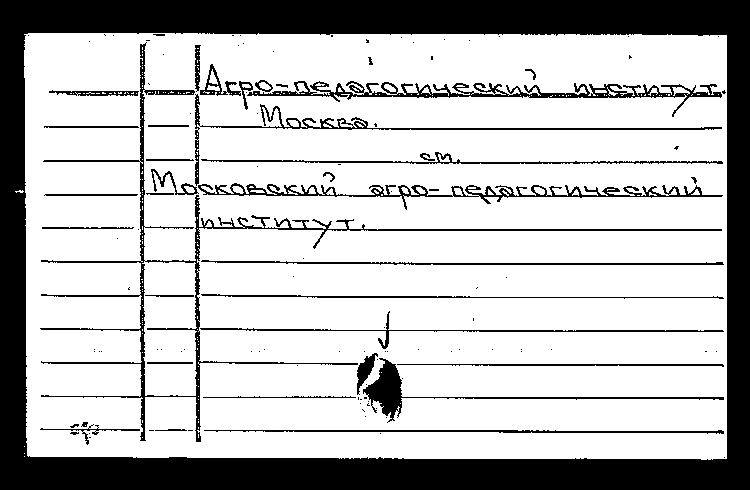 Агро-педагогический институт.
Москва.
см.
Московский агро-педагогический
институт.